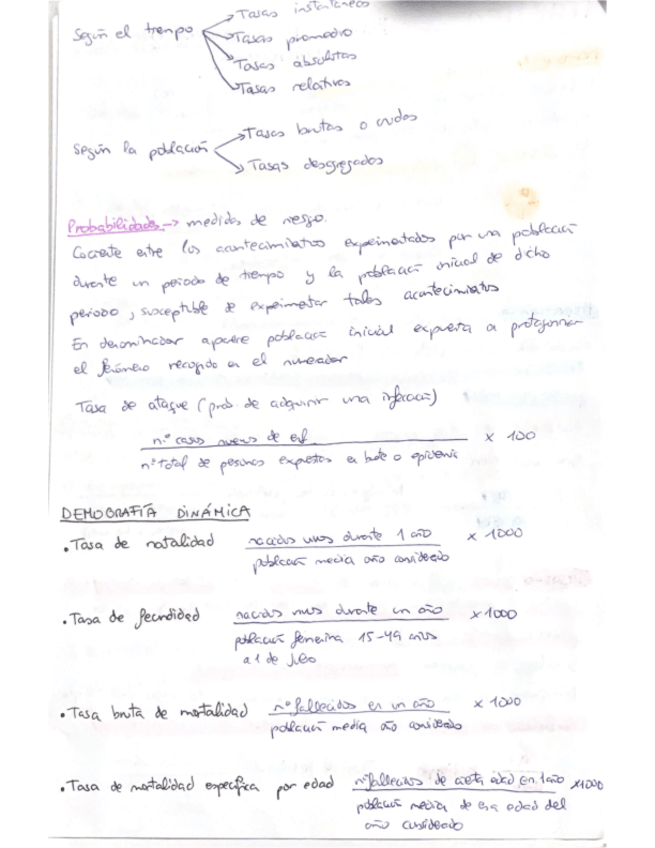 Tasas instantáneas
Según el tiempo
Tasas promedio
Tasas absolutas
Tasas relativas
Tasas brutas o crudas
Según la población
Tasas desgregadas
Probabilidades → medidas de riesgo.
Cociente entre los acontecimientos experimentados por una población
durante un periodo de tiempo y la población inicial de dicho
periodo, susceptible de experimentar tales acontecimientos
En denominador aparece población inicial expuesta a protagonizar
el fenómeno recogido en el numerador
Tasa de ataque (prob. de adquirir una infección)
nº casos nuevos de enf. x 100
nº total de personas expuestas en brote o epidemia
DEMOGRAFÍA DINÁMICA
• Tasa de natalidad nacidos vivos durante 1 año x 1000
población media año considerado
• Tasa de fecundidad nacidos vivos durante un año x 1000
población femenina 15-49 años
a 1 de julio
• Tasa bruta de mortalidad nº fallecidos en un año x 1000
población media año considerado
• Tasa de mortalidad específica por edad nº fallecidos de cierta edad en 1 año x1000
población media de esa edad del
año considerado